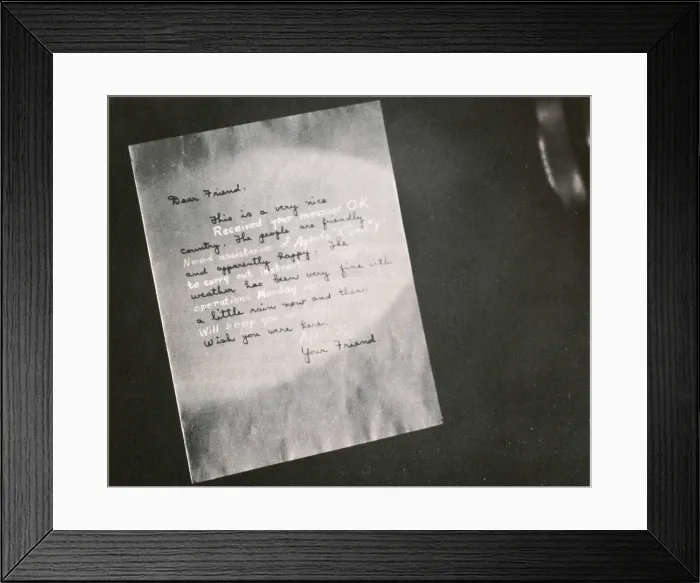 Dear Friend.
This is a very nice
Received your message O.K.
country. The people are friendly
Need assistance 3 Agents
and apparently happy. The
to carry out
weather has been very fine with
operations Monday
a little rain now and then.
Will keep you
Wish you were here.
Your Friend.